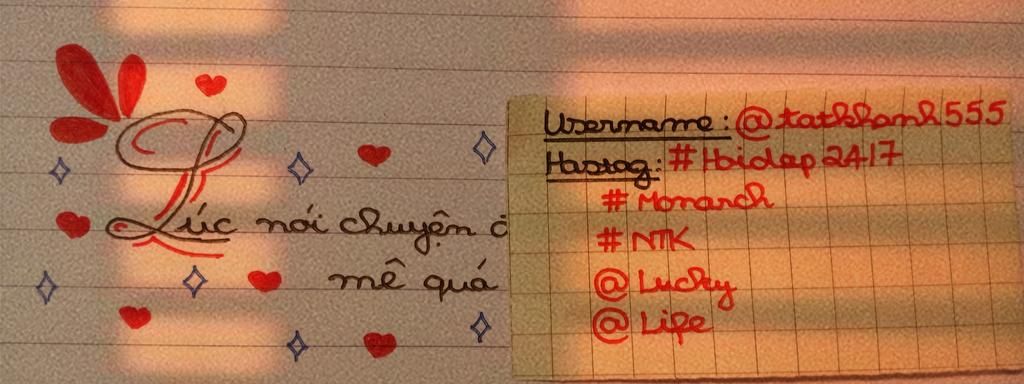 Lúc nói chuyện
mê quá
Username: @tatkhanh555
Hastag: #Hoidap247
#Monarch
#NTK
@Lucky
@Life